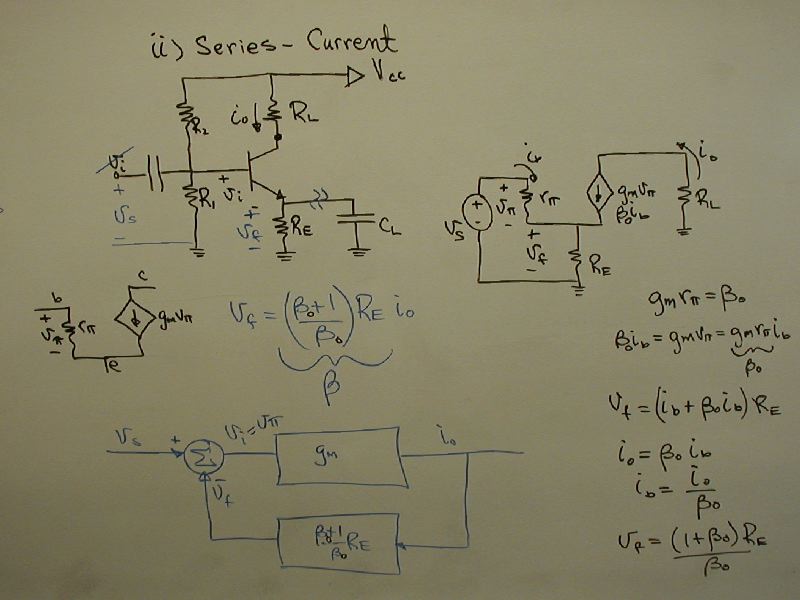 ii) Series - Current
Vcc
R2
io
RL
vi
+
vs
-
R1
+
vi
-
+
vf
-
RE
CL
vs
+
vπ
-
rπ
+
vf
-
RE
gmvπ
βoib
RL
io
b
+
vπ
-
rπ
c
gmvπ
e
vf = (βo+1/βo) RE io
β
gmrπ = βo
βoib = gmvπ = gmrπib
βo
vf = (ib + βoib) RE
io = βo ib
ib = io/βo
vf = (1+βo) RE/βo
vs
+
Σ
-
vf
vi = vπ
gm
io
βo+1/βo RE